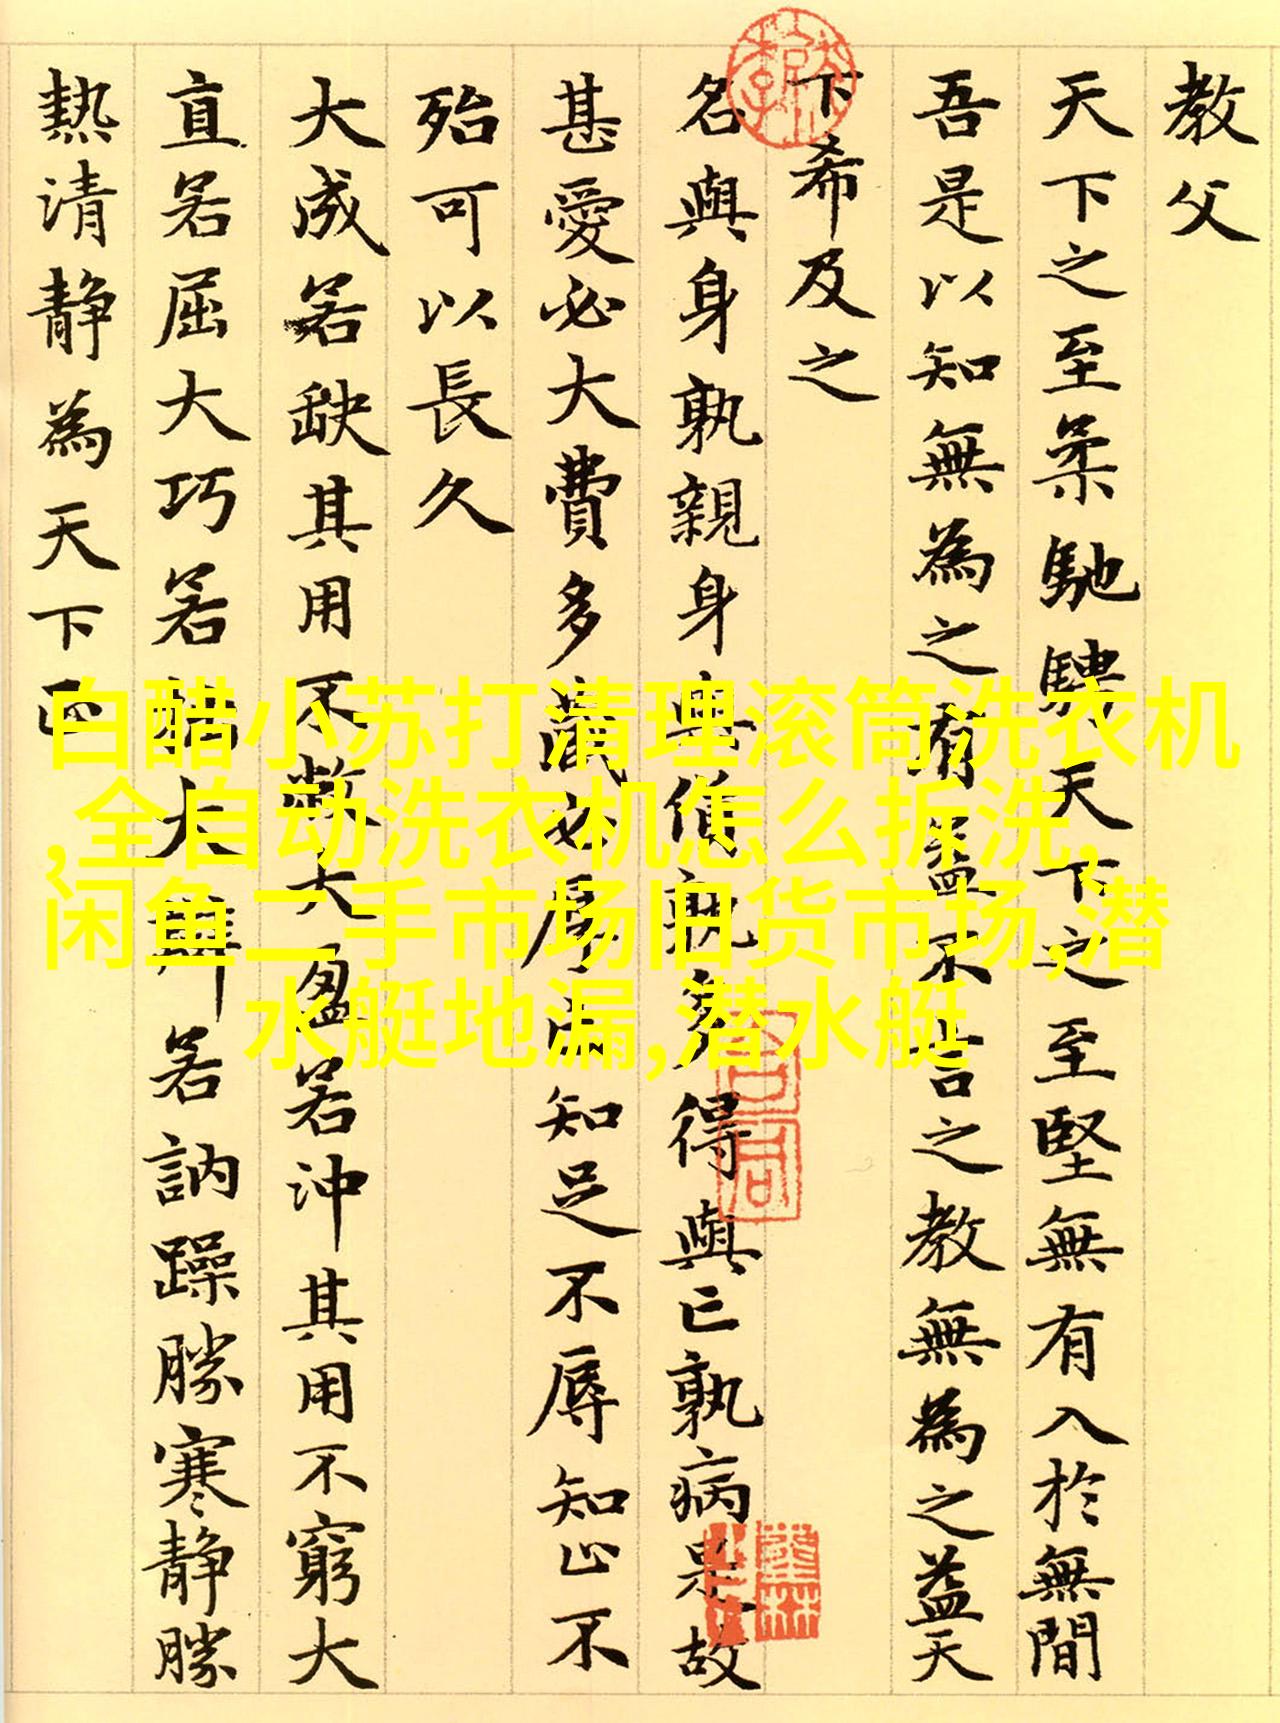 教父
天下之至柔馳騁天下之至堅無有入於無間
吾是以知無為之有益不言之教無為之益天
下希及之
名與身孰親身與貨孰多得與亡孰病是故
甚愛必大費多藏必厚亡知足不辱知止不
殆可以長久
大成若缺其用不弊大盈若沖其用不窮大
直若屈大巧若拙大辯若訥躁勝寒靜勝
熱清靜為天下正
白醋小苏打清理滚筒洗衣机
,全自动洗衣机怎么拆洗,
闲鱼二手市场旧货市场,潜
水艇地漏,潜水艇